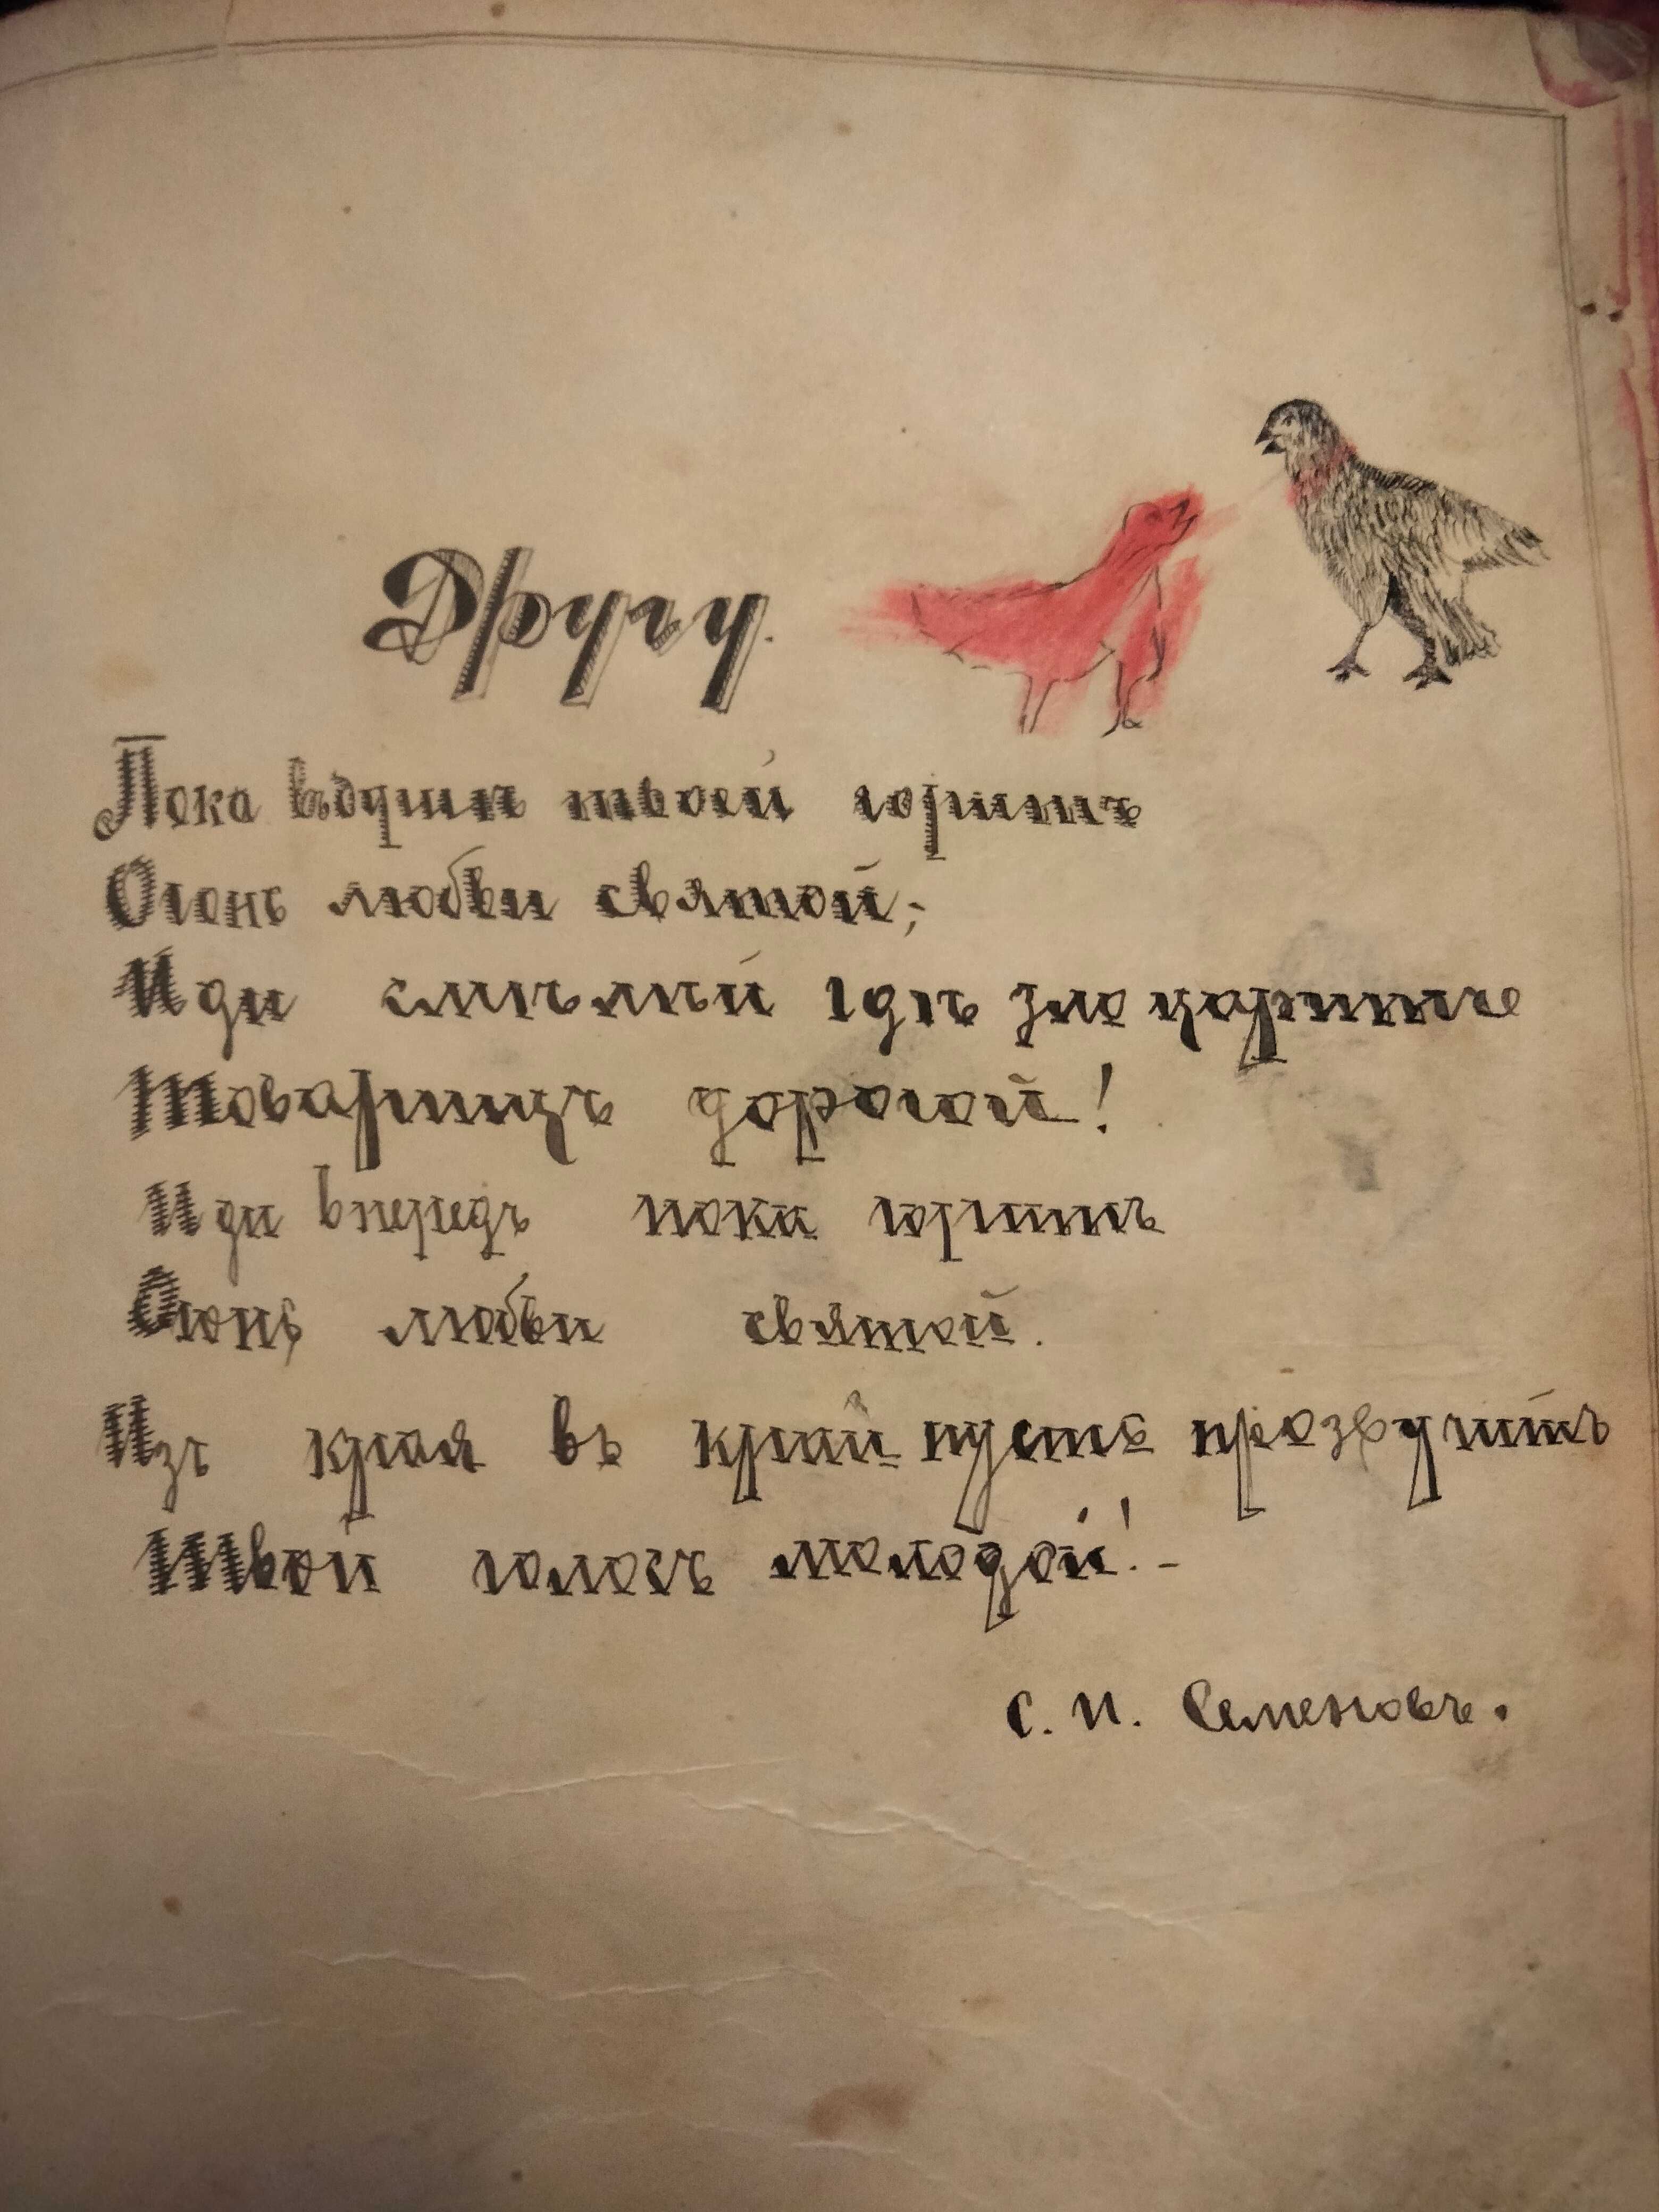 Другу.
Пока въ душѣ твоей горитъ
Огонь любви святой;
Иди смѣлѣй гдѣ зло царитъ
Товарищъ дорогой!
Иди впередъ пока горитъ
Огонь любви святой.
Изъ края въ край пусть прозвучитъ
Твой голосъ молодой! -
С. И. Семеновъ.